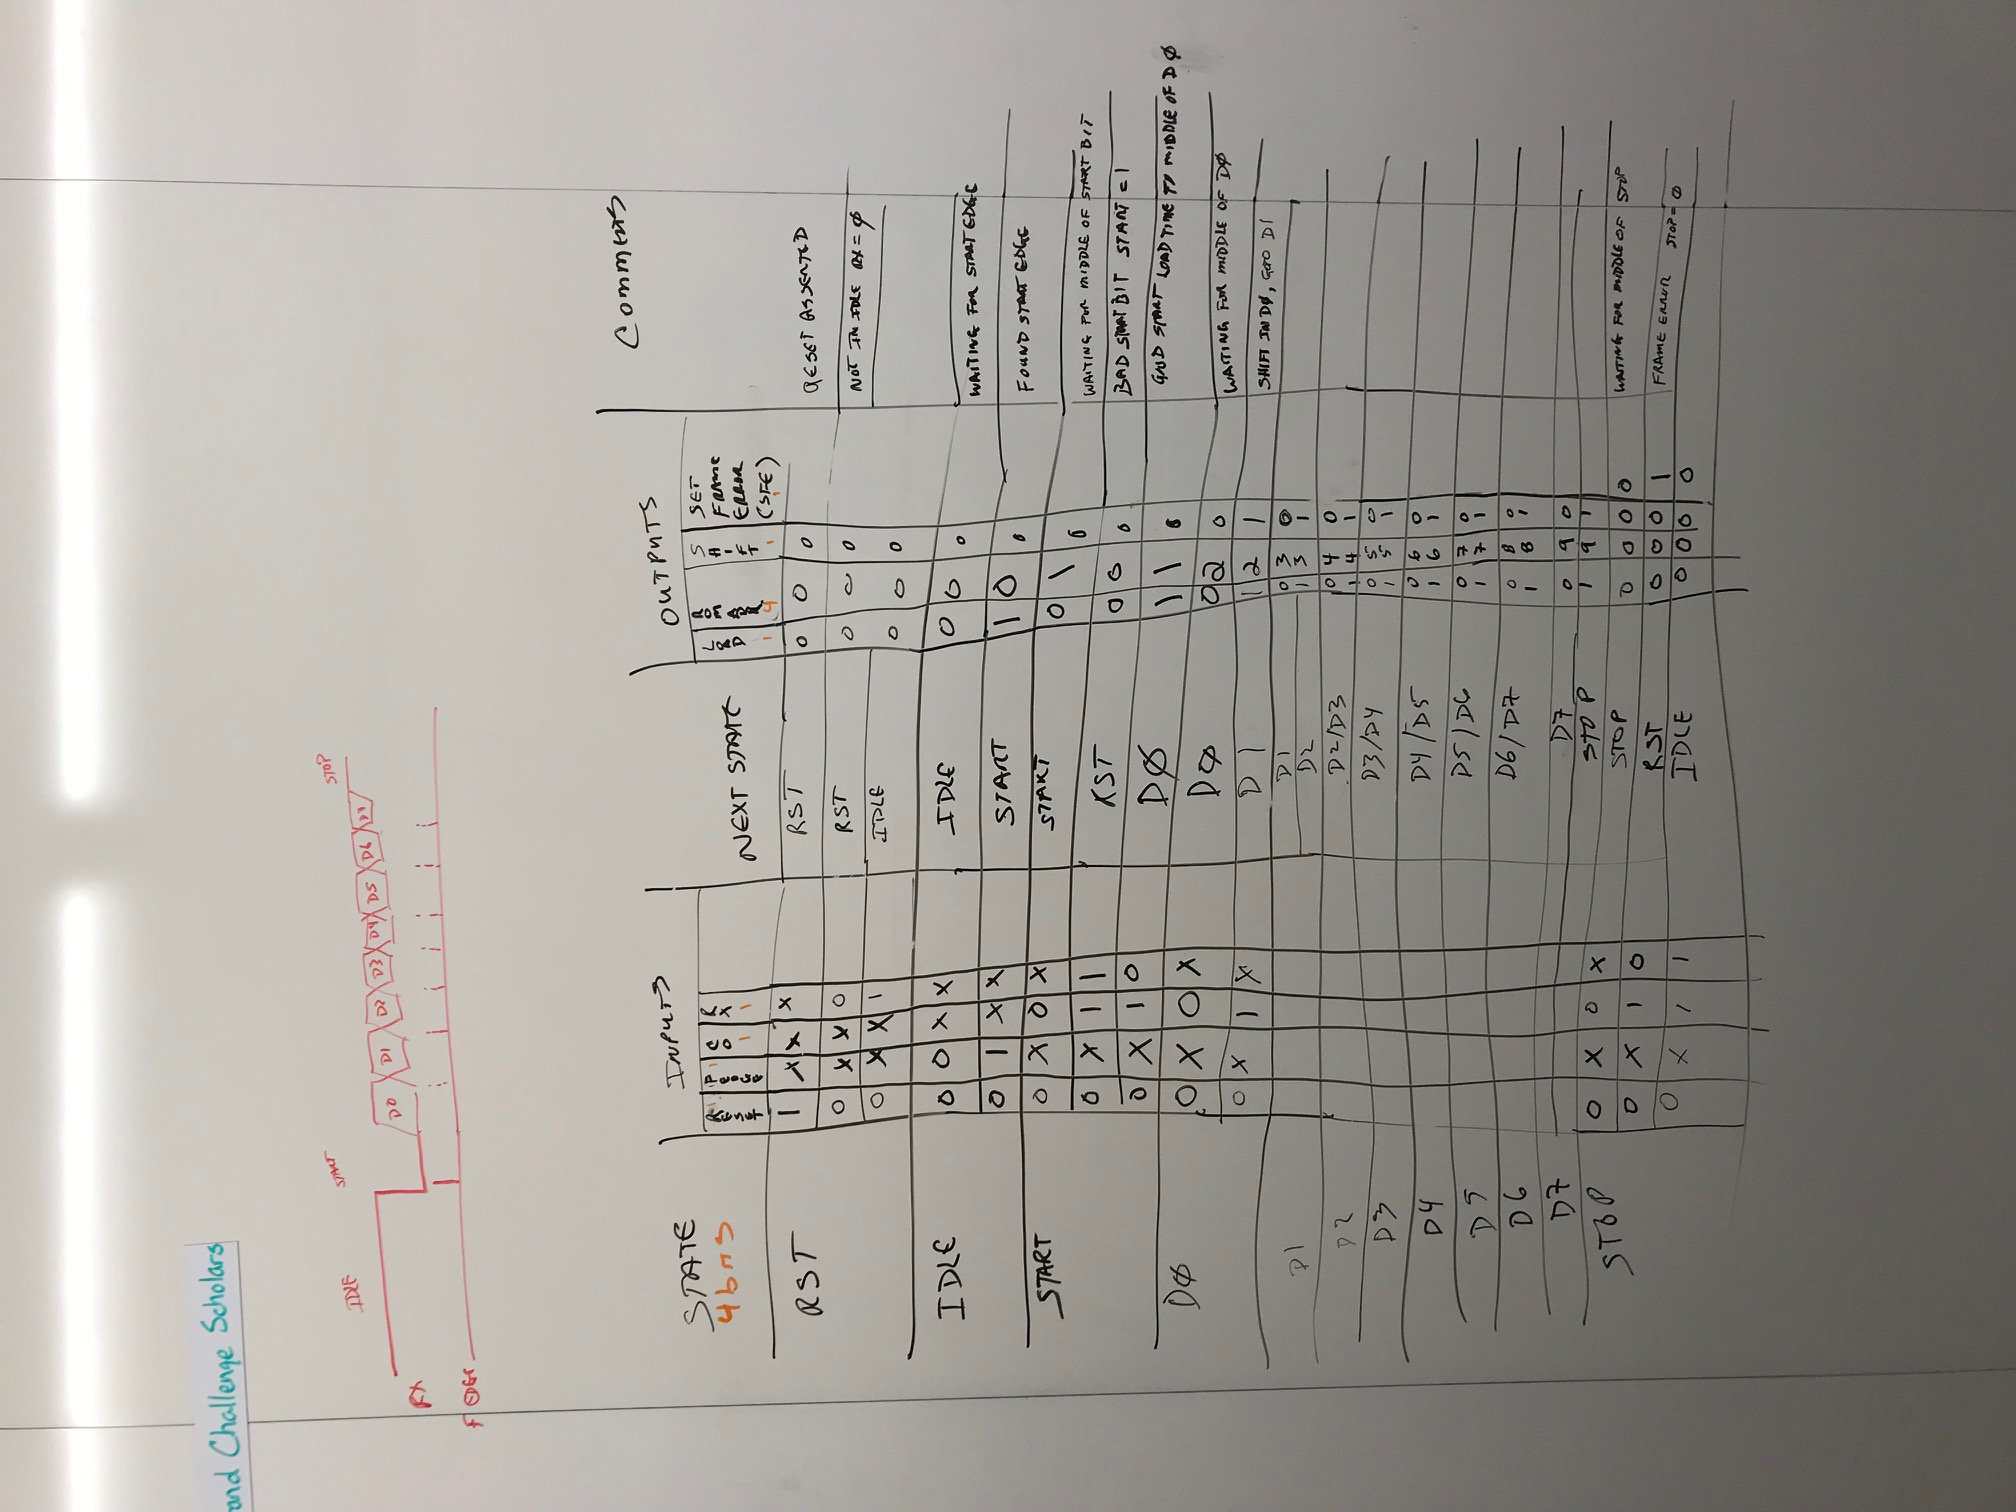 and Challenge Scholars
IDLE START STOP
RX D0 D1 D2 D3 D4 D5 D6 D7
F EDGE
STATE INPUTS NEXT STATE OUTPUTS Comments
4 bits RESET 1 FEDGE 1 CO 1 RX 1 LOAD 1 ROM ADDR 4 SHIFT 1 SET FRAME ERROR (SFE) 1
RST 1 X X X RST 0 0 0 RESET ASSERTED
0 X X 0 RST 0 0 0 NOT IN IDLE RX = Ø
0 X X 1 IDLE 0 0 0
IDLE 0 0 X X IDLE 0 0 0 WAITING FOR START EDGE
0 1 X X START 1 0 0 FOUND START EDGE
START 0 X 0 X START 0 1 0 WAITING FOR MIDDLE OF START BIT
0 X 1 1 RST 0 0 0 BAD START BIT START = 1
0 X 1 0 DØ 1 1 0 GOOD START LOAD TIME TO MIDDLE OF DØ
DØ 0 X 0 X DØ 0 2 0 WAITING FOR MIDDLE OF DØ
0 X 1 X D1 1 2 1 SHIFT IN DØ, GOTO D1
D1 D1 0 3 0
D2 1 3 1
D2 D2/D3 0 4 0
1 4 1
D3 D3/D4 0 5 0
1 5 1
D4 D4/D5 0 6 0
1 6 1
D5 D5/D6 0 7 0
1 7 1
D6 D6/D7 0 8 0
1 8 1
D7 D7 0 9 0
STOP 1 9 1
STOP 0 X 0 X STOP 0 0 0 0 WAITING FOR MIDDLE OF STOP
0 X 1 0 RST 0 0 0 1 FRAME ERROR STOP = Ø
0 X 1 1 IDLE 0 0 0 0